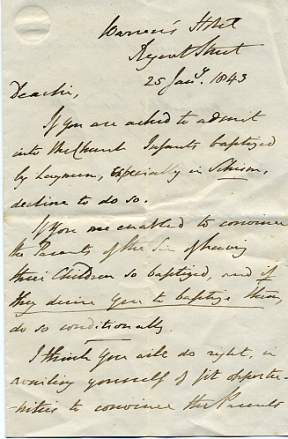 Warren's Hotel
Regent Street
25 Jany. 1843
Dear Sir,
If you are asked to admit
into the Church Infants baptized
by Laymen, especially in Schism,
decline to do so.
If you are enabled to convince
the Parents of the Sin of having
their Children so baptized, and if
they desire you to baptize them,
do so conditionally.
I think you will do right, in
availing yourself of fit opportu-
-nities to convince the Parents